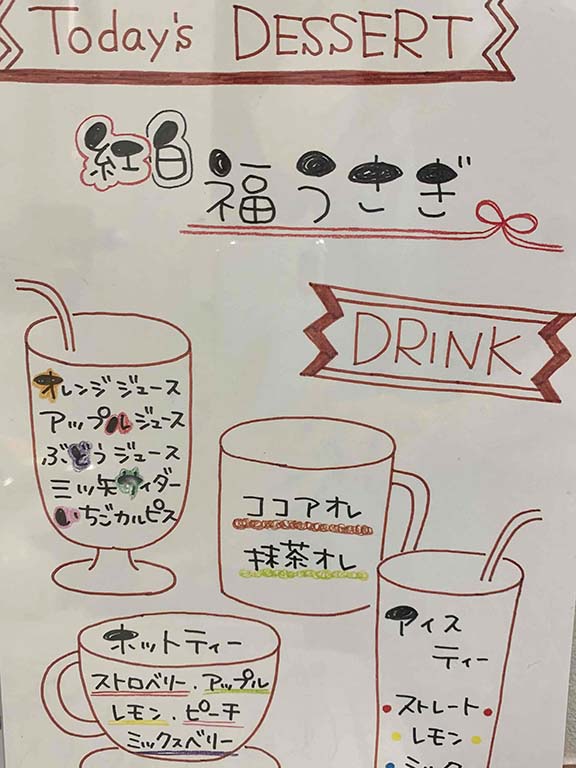 Today's DESSERT
紅白 福うさぎ
DRINK
オレンジジュース
アップルジュース
ぶどうジュース
三ツ矢サイダー
いちごカルピス
ココアオレ
抹茶オレ
ホットティー
ストロベリー．アップル
レモン．ピーチ
ミックスベリー
アイス
ティー
ストレート
レモン
ミック